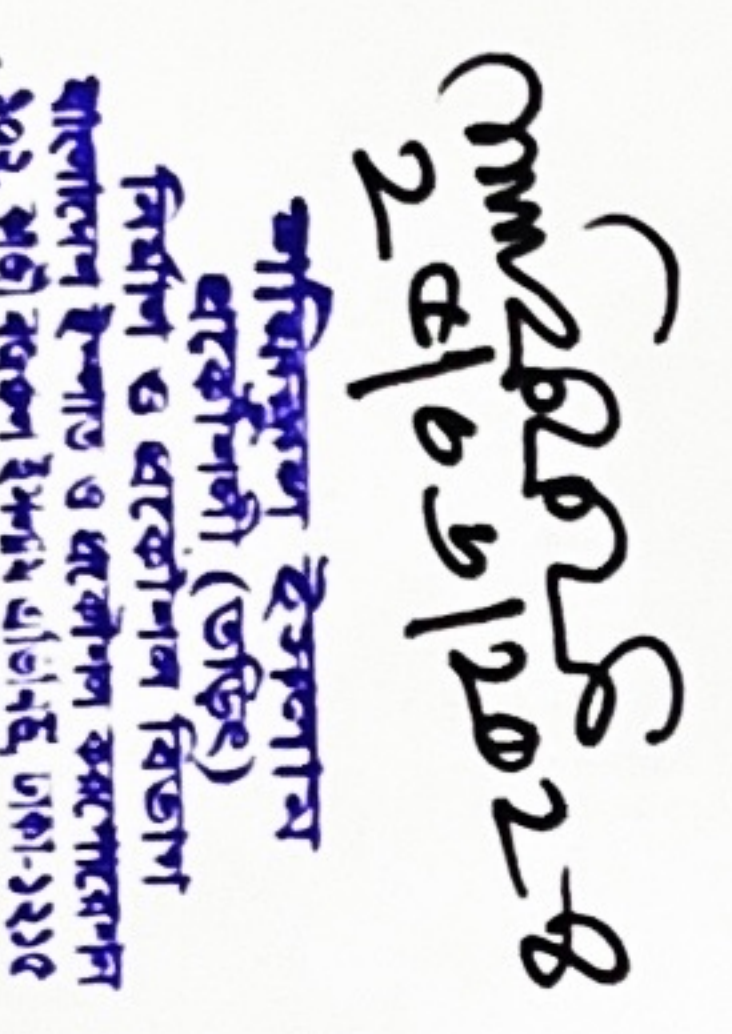 ইসলাম
প্রকৌশলী (তড়িৎ)
নির্মাণ ও প্রকৌশল বিভাগ
বাংলাদেশ ইস্পাত ও প্রকৌশল করপোরেশন
১০২, কাজী নজরুল ইসলাম এভিনিউ, ঢাকা-১২১৫